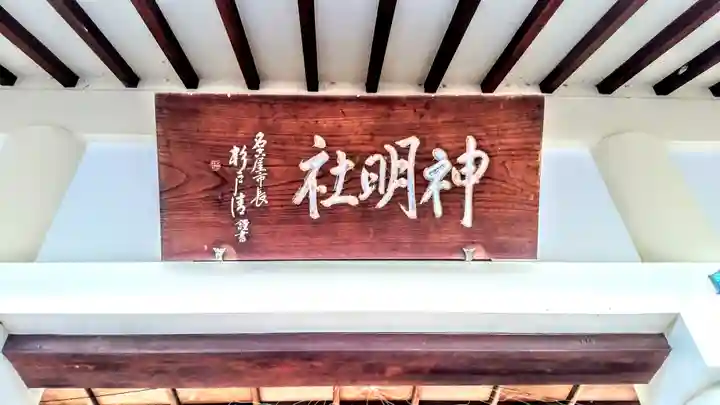 神明社
名古屋市長
杉戸清 謹書